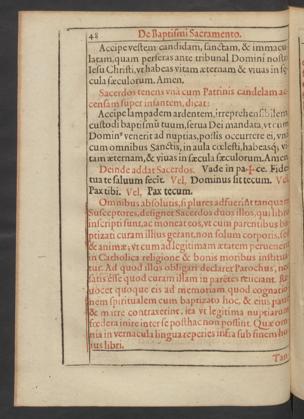 48 De Baptismi Sacramento.
Accipe vestem candidam, sanctam, & immacu-
latam, quam perferas ante tribunal Domini nostri
Iesu Christi, vt habeas vitam æternam & viuas in sę-
cula sæculorum. Amen.
Sacerdos tenens vnà cum Patrinis candelam ac-
censam super infantem, dicat:
Accipe lampadem ardentem, irreprehensibilem
custodi baptismũ tuum, serua Dei mandata, vt cum
Domin⁹ venerit ad nuptias, possis occurrere ei, vnà
cum omnibus Sanctis, in aula cœlesti, habeasq; vi-
tam æternam, & viuas in sæcula sæculorum. Amen.
Deinde addat Sacerdos. Vade in pa✠ce. Fides
tua te saluum fecit. Vel, Dominus sit tecum. Vel,
Pax tibi. Vel, Pax tecum.
Omnibus absolutis, si plures adfuerĩt tanquam
Susceptores, designet Sacerdos duos illos, qui libro
inscripti sunt, ac moneat eos, vt cum parentibus ba-
ptizati curam illius gerant, non solum corporis, sed
& animæ, vt cum ad legitimam ætatem peruenerit
in Catholica religione & bonis moribus institua-
tur. Ad quod illos obligari declaret Parochus, nec
satis esse quod curam illam in parẽtes reijciant. Ad-
uocet quoque eis ad memoriam quod cognatio-
nem spiritualem cum baptizato hoc, & eius patre
& matre contraxerint, ita vt legitima nuptiarum
fœdera inire inter se posthac non possint. Quæ om-
nia in vernacula lingua reperies infra sub finem hu-
ius libri.
Tan